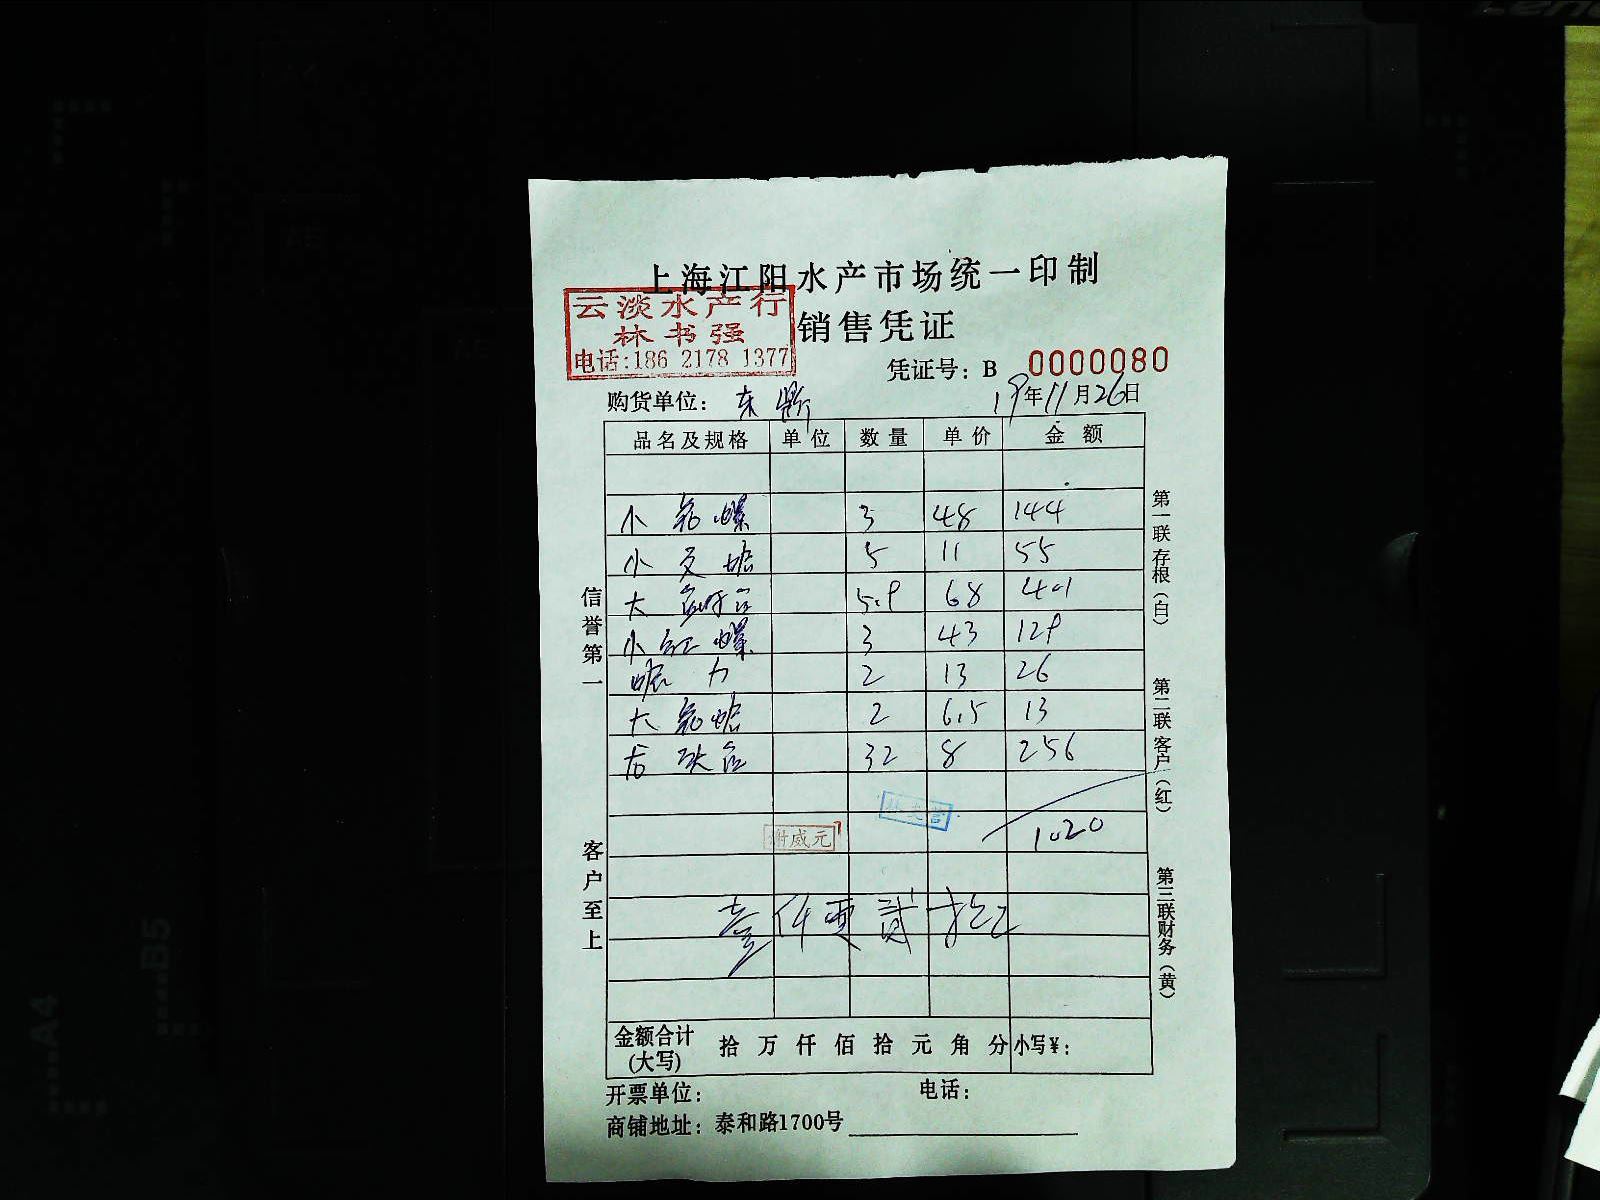 上海江阳水产市场统一印制
云淡水产行
林书强
电话:186 2178 1377
销售凭证
凭证号: B 0000080
购货单位: 东 19年11月26日
品名及规格 单位 数量 单价 金额
小花螺 3 48 144
小 5 11 55
大 5.9 68 401
小红螺 3 43 129
2 13 26
大花蛤 2 6.5 13
32 8 256
谢威元
1020
壹仟零贰拾元
金额合计
(大写) 拾 万 仟 佰 拾 元 角 分 小写¥:
开票单位: 电话:
商铺地址: 泰和路1700号
信誉第一
客户至上
第一联存根(白)
第二联客户(红)
第三联财务(黄)